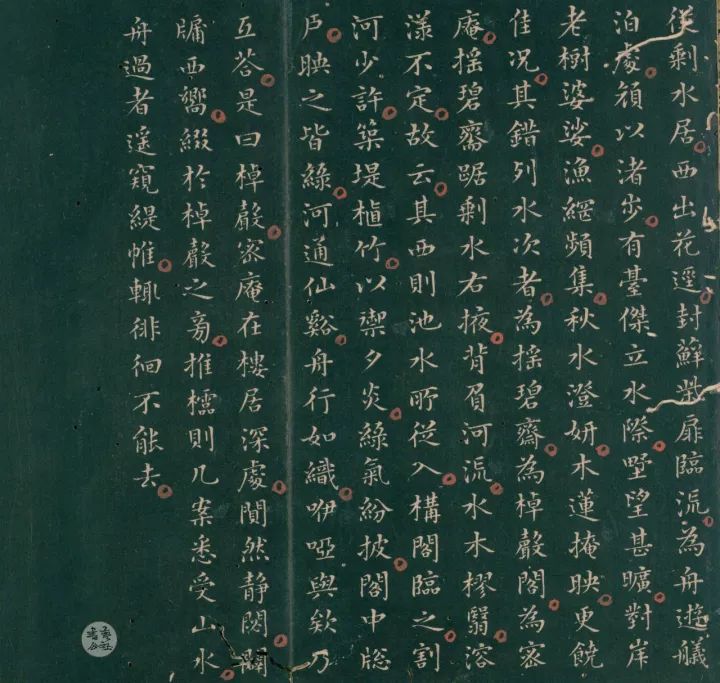 從剩水居西出花逕封蘚紫扉臨流為舟遊艤
泊處傾以渚步有臺傑立水際墅望甚曠對岸
老樹婆娑漁網頻集秋水澄妍木蓮掩映更饒
佳况其錯列水次者為搖碧齋為棹聲閣為密
庵搖碧齋踞剩水右掖背眉河流水木樛翳溶
漾不定故云其西則池水所從入構閣臨之割
河少許築堤植竹以禦夕炎綠氣紛披閣中牎
戶映之皆綠河通仙谿舟行如織咿啞與欸乃
互答是曰棹聲密庵在樓居深處閴然靜閟闢
牖西嚮綴於棹聲之旁推櫺則几案悉受山水
舟過者遥窺緹帷輒徘徊不能去